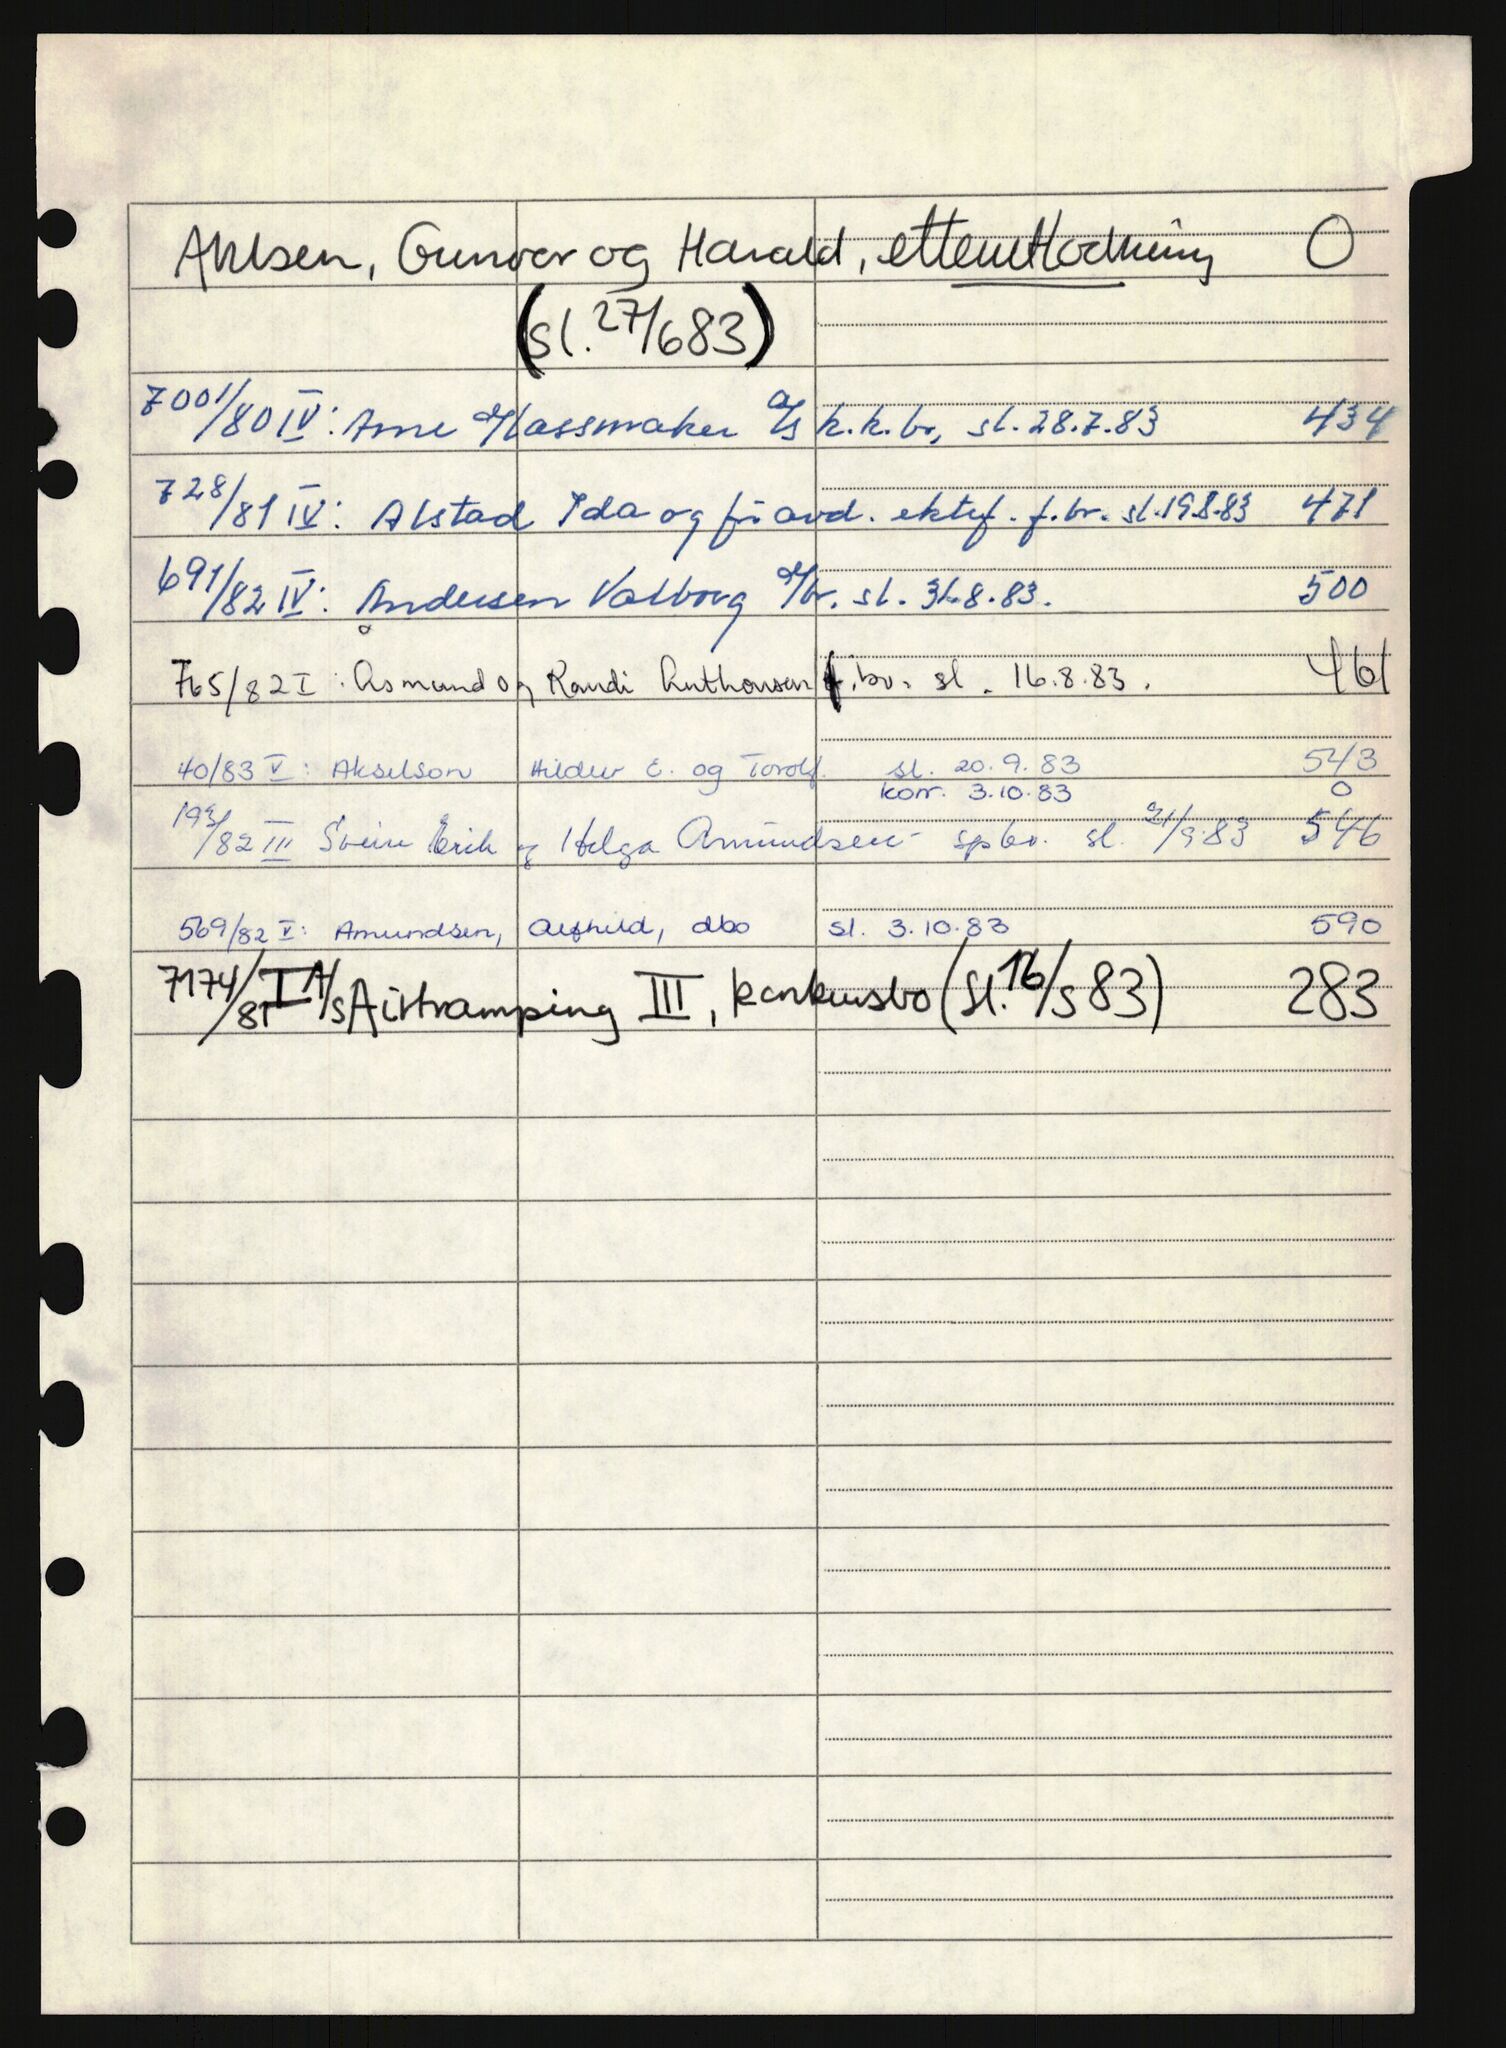 Ahlsen, Gunvor og Harald, etterutlodning 0
(sl. 27/6 83)
7001/80 IV: Arne Klassmaker A/S k.k.bo, sl. 28.7.83 434
728/81 IV: Alstad Ida og før avd. ektef. f.bo. sl. 19.8.83 471
691/82 IV: Andersen Valborg d/bo. sl. 31.8.83. 500
765/82 I: Åsmund og Randi Anthonsen f.bo. sl. 16.8.83. 461
40/83 V: Akselson Hildur E. og Torolf sl. 20.9.83 543
korr. 3.10.83 0
193/82 III Svein Erik og Helga Amundsen spbo. sl. 21/9.83 546
569/82 V: Amundsen, Alfhild, dbo sl. 3.10.83 590
7174/81 I A/S Airtramping III, konkursbo (sl. 16/5 83) 283